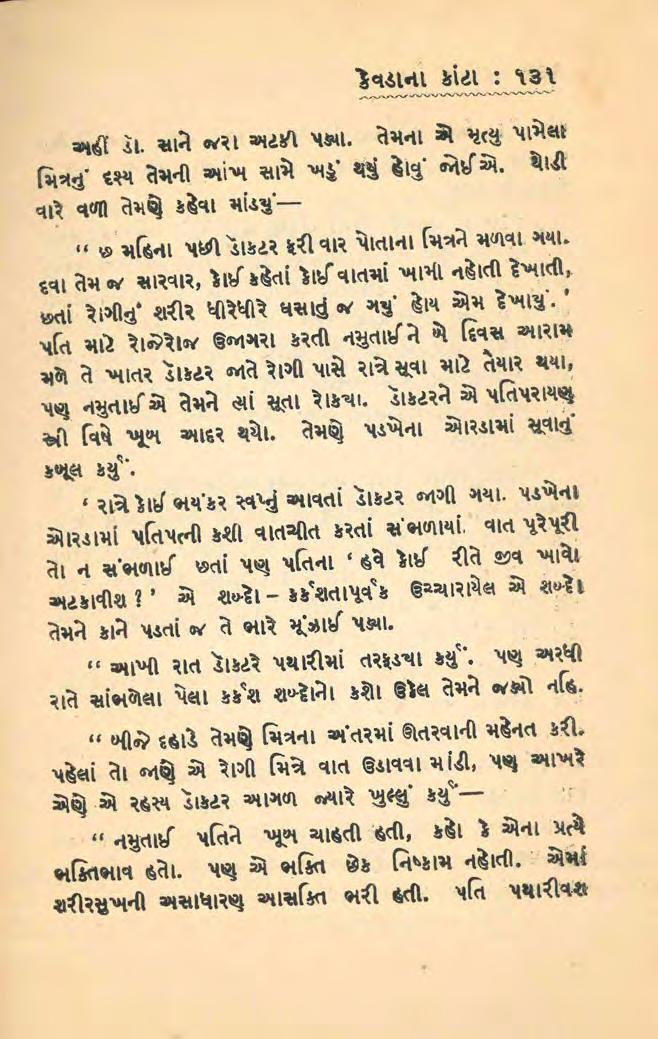 કેવડાના કાંટા : ૧૩૧
અહીં ડૉ. સાને જરા અટકી પડ્યા. તેમના એ મૃત્યુ પામેલા
મિત્રનું દૃશ્ય તેમની આંખ સામે ખડું થયું હોવું જોઈએ. થોડી
વારે વળી તેમણે કહેવા માંડ્યું—
“ છ મહિના પછી ડૉકટર ફરી વાર પોતાના મિત્રને મળવા ગયા.
દવા તેમ જ સારવાર, કોઈ કહેતાં કોઈ વાતમાં ખામી નહોતી દેખાતી,
છતાં રોગીનું શરીર ધીરેધીરે ઘસાતું જ ગયું હોય એમ દેખાયું. ’
પતિ માટે રોજેરોજ ઉજાગરા કરતી નમુતાઈને બે દિવસ આરામ
મળે તે ખાતર ડૉકટર જાતે રોગી પાસે રાત્રે સૂવા માટે તૈયાર થયા,
પણ નમુતાઈએ તેમને ત્યાં સૂતા રોકયા. ડૉકટરને એ પતિપરાયણ
સ્ત્રી વિષે ખૂબ આદર થયો. તેમણે પડખેના ઓરડામાં સૂવાનું
કબૂલ કર્યું.
‘ રાત્રે કોઈ ભયંકર સ્વપ્નું આવતાં ડૉકટર જાગી ગયા. પડખેના
ઓરડામાં પતિપત્ની કશી વાતચીત કરતાં સંભળાયાં. વાત પૂરેપૂરી
તો ન સંભળાઈ છતાં પણ પતિના ‘ હવે કોઈ રીતે જીવ ખાવો
અટકાવીશ ? ’ એ શબ્દો – કર્કશતાપૂર્વક ઉચ્ચારાયેલ એ શબ્દો
તેમને કાને પડતાં જ તે ભારે મૂંઝાઈ પડ્યા.
“ આખી રાત ડૉકટરે પથારીમાં તરફડયા કર્યું. પણ અરધી
રાતે સાંભળેલા પેલા કર્કશ શબ્દોનો કશો ઉકેલ તેમને જડ્યો નહિ.
“ બીજે દહાડે તેમણે મિત્રના અંતરમાં ઊતરવાની મહેનત કરી.
પહેલાં તો જાણે એ રોગી મિત્રે વાત ઉડાવવા માંડી, પણ આખરે
એણે એ રહસ્ય ડૉકટર આગળ જ્યારે ખુલ્લું કર્યું—
“ નમુતાઈ પતિને ખૂબ ચાહતી હતી, કહો કે એના પ્રત્યે
ભક્તિભાવ હતો. પણ એ ભક્તિ છેક નિષ્કામ નહોતી. એમાં
શરીરસુખની અસાધારણ આસક્તિ ભરી હતી. પતિ પથારીવશ